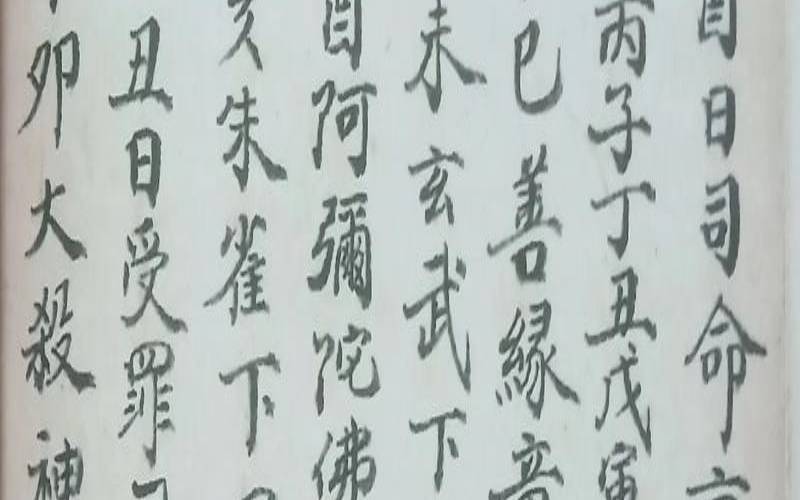 酉日司命
丙子丁丑戊寅
巳善緣音
未玄武下
酉阿彌陀佛
亥朱雀下
丑日受罪
卯大殺神